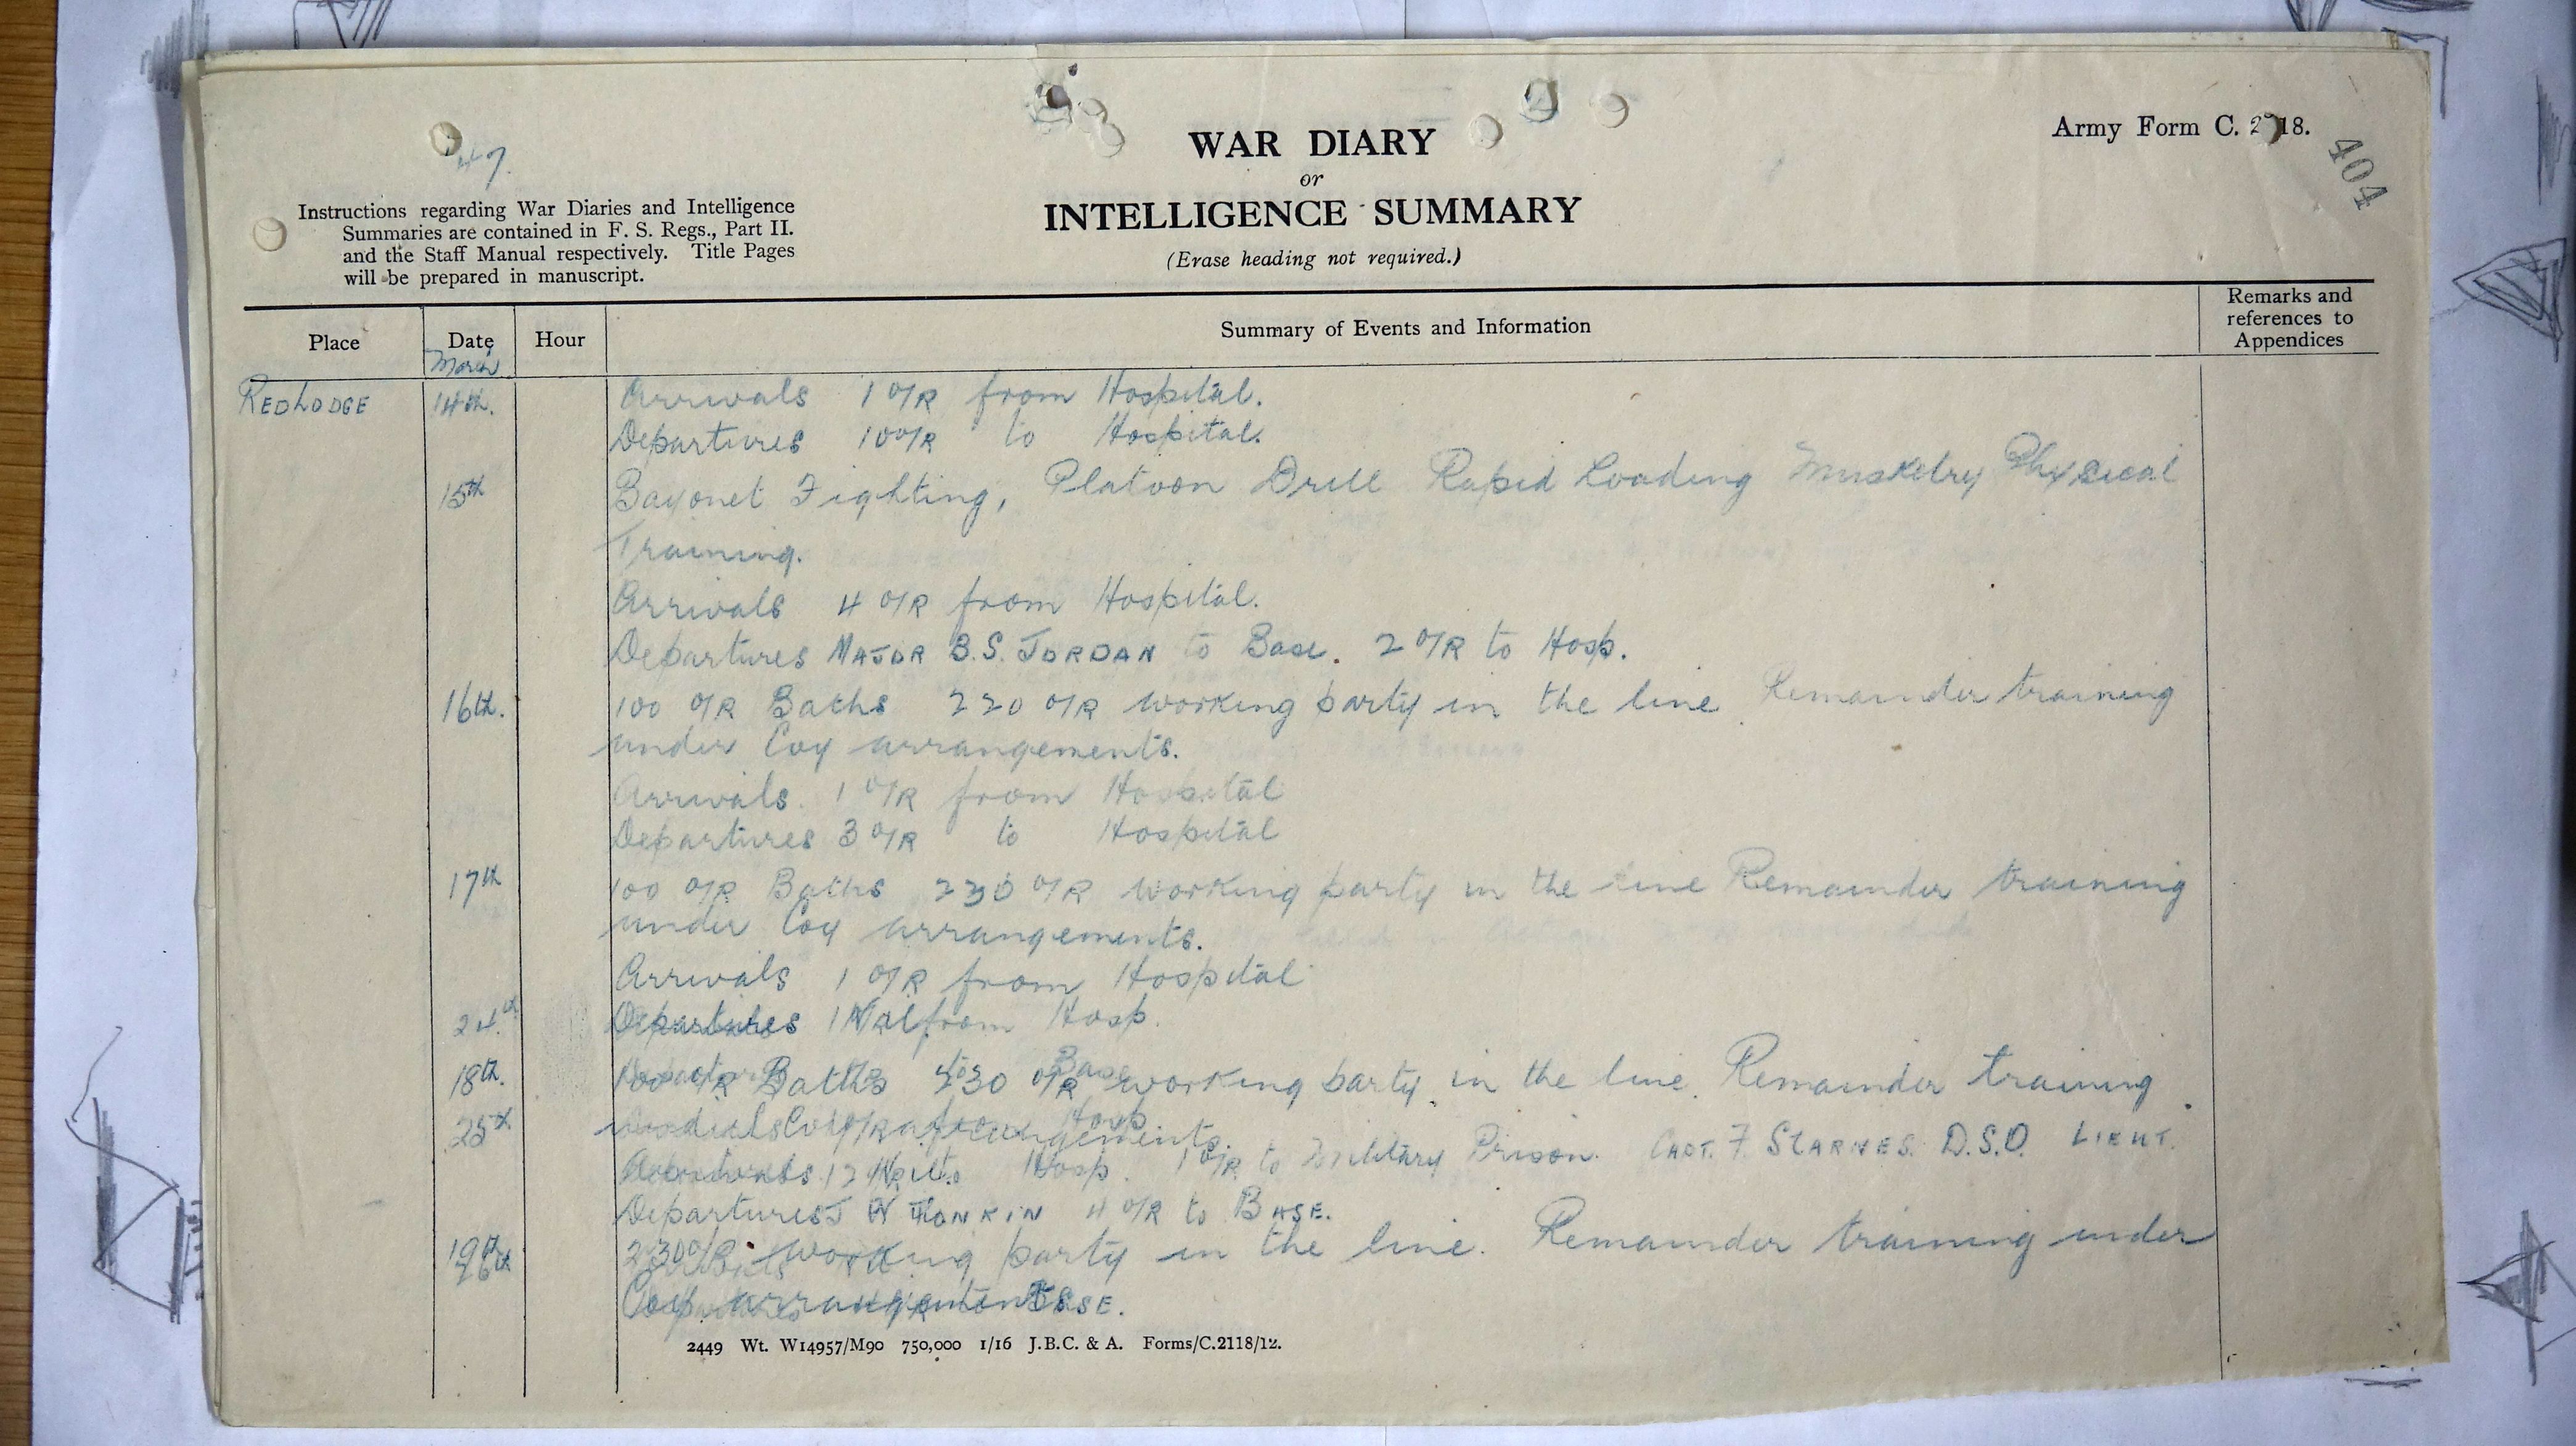 47.
WAR DIARY
or
INTELLIGENCE SUMMARY
(Erase heading not required.)
Army Form C. 2118.
404
Instructions regarding War Diaries and Intelligence
Summaries are contained in F. S. Regs., Part II.
and the Staff Manual respectively. Title Pages
will be prepared in manuscript.
Place Date Hour Summary of Events and Information Remarks and references to Appendices
March
REDLODGE 14th. Arrivals 1 O/R from Hospital.
Departures 10 O/R to Hospital.
15th Bayonet Fighting, Platoon Drill Rapid Loading Musketry Physical
Training.
Arrivals 4 O/R from Hospital.
Departures MAJOR B.S. JORDAN to Base. 2 O/R to Hosp.
16th. 100 O/R Baths 220 O/R working party in the line Remainder training
under Coy arrangements.
Arrivals. 1 O/R from Hospital
Departures 3 O/R to Hospital
17th 100 O/R Baths 230 O/R working party in the line Remainder training
under Coy arrangements.
Arrivals 1 O/R from Hospital
24th Departures from Hosp.
18th. 100 O/R Baths 230 O/R working party in the line. Remainder training
25th Coy arrangements.
Hosp. 1 O/R to Military Prison. CAPT. F. STARNES. D.S.O. LIEUT.
Departures 4 O/R to BASE.
19th 230 O/R working party in the line. Remainder training under
26th Coy arrangements BASE.
2449 Wt. W14957/M90 750,000 1/16 J.B.C. & A. Forms/C.2118/12.